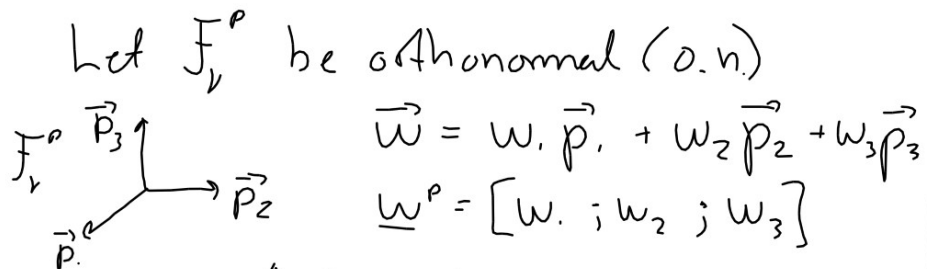 Let F_v^p be othonormal (o.n.)
F_v^p p⃗₃ p⃗₂ p⃗₁
w⃗ = w₁ p⃗₁ + w₂ p⃗₂ + w₃ p⃗₃
w̲^p = [w₁ ; w₂ ; w₃]